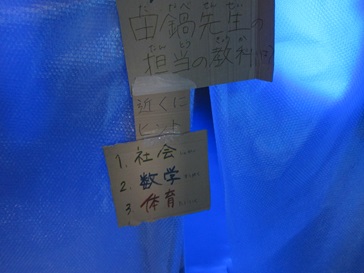 田鍋先生の
担当の教科は?
近くに
ヒント
1. 社会
2. 数学
3 体育